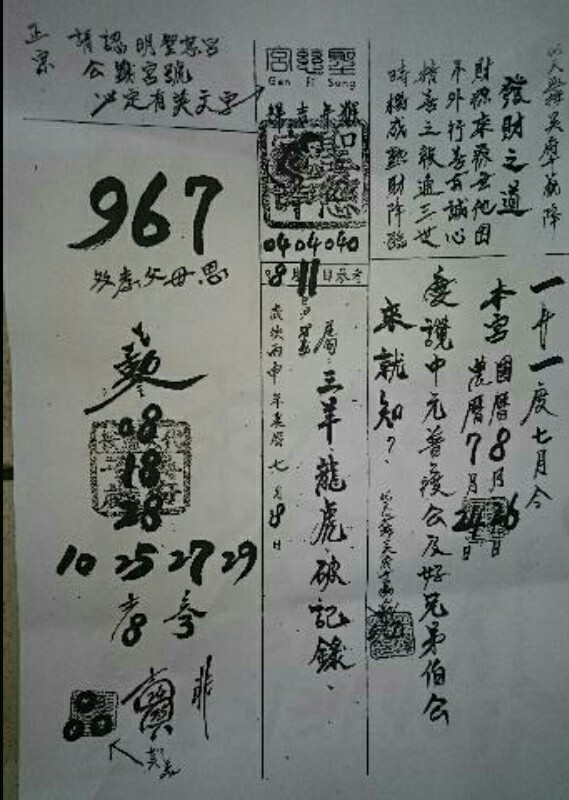 發財之道
財源來發無他因
不外行善有誠心
積善之報通三世
時機成熟財降臨
一年一度七月令
本宮國曆8月26日
農曆7月24日
慶讚中元普渡公及好兄弟伯公
來就知?
聖慈宮
Gen Ji Sung
猴年吉祥
04 04 040
8月11日參考
三羊、龍虎、破記錄、
歲次丙申年農曆七月8日
正宗
請認明聖慈宮
公戳宮號
必定有英文字
967
父母恩
08
18
28
10 25 27 29
8